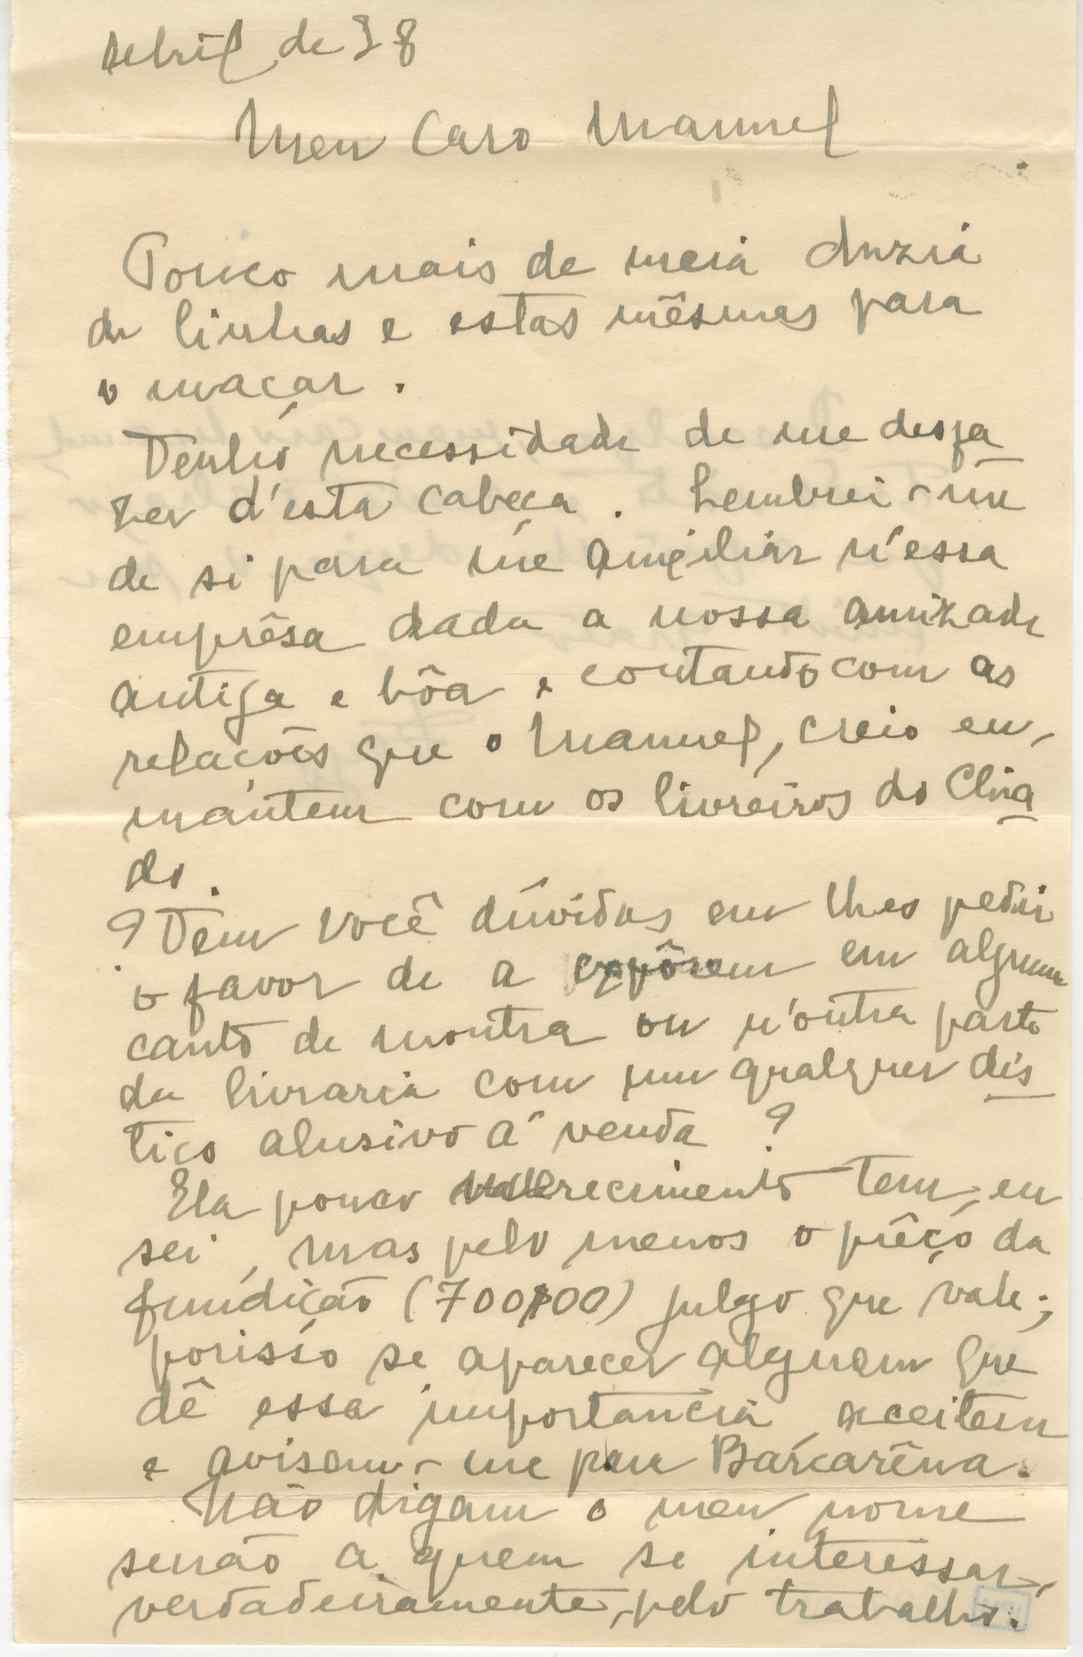 Abril de 38
Meu Caro Manuel
Pouco mais de meia duzia
de linhas e estas mêsmas para
o maçar.
Tenho necessidade de me desfa
zer d'esta cabeça. Lembrei-me
de si para me auxiliar n'essa
emprêsa dada a nossa amizade
antiga e bôa e contando com as
relações que o Manuel, creio eu,
mantem com os livreiros do Chia
do.
¿Tem você dúvidas em lhes pedir
o favor de a expôrem em algum
canto de montra ou n'outra parte
da livraria com um qualquer dis
tico alusivo á venda?
Ela pouco merecimento tem, eu
sei, mas pelo menos o prêço da
fundição (700$00) julgo que vale;
porisso se aparecer alguem que
dê essa importancia, aceitem
e avisem-me para Barcarêna.
Não digam o meu nome
senão a quem se interessar,
verdadeiramente, pelo trabalho.